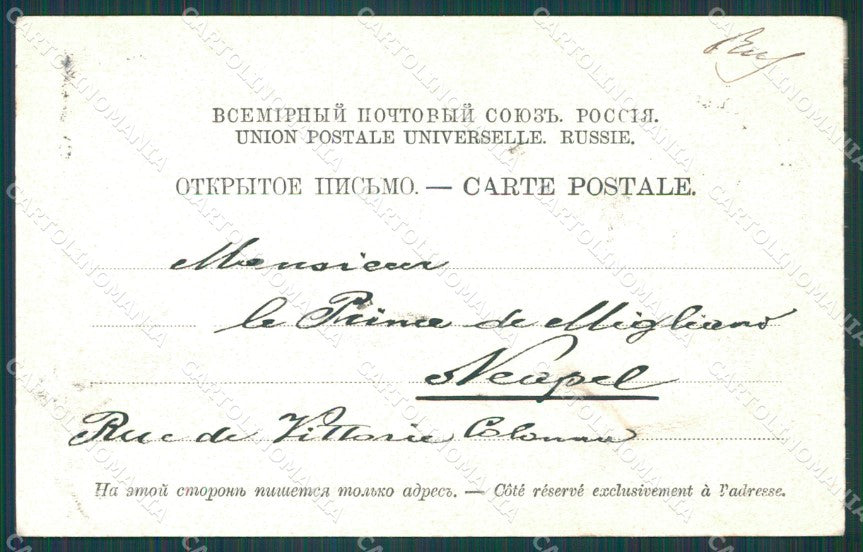 ВСЕМІРНЫЙ ПОЧТОВЫЙ СОЮЗЪ. РОССІЯ.
UNION POSTALE UNIVERSELLE. RUSSIE.
ОТКРЫТОЕ ПИСЬМО. — CARTE POSTALE.
Monsieur
le Prince de Migliano
Neapel
Rue de Vittorie Colonna
На этой сторонѣ пишется только адресъ. — Côté réservé exclusivement à l'adresse.
CARTOLINOMANIA